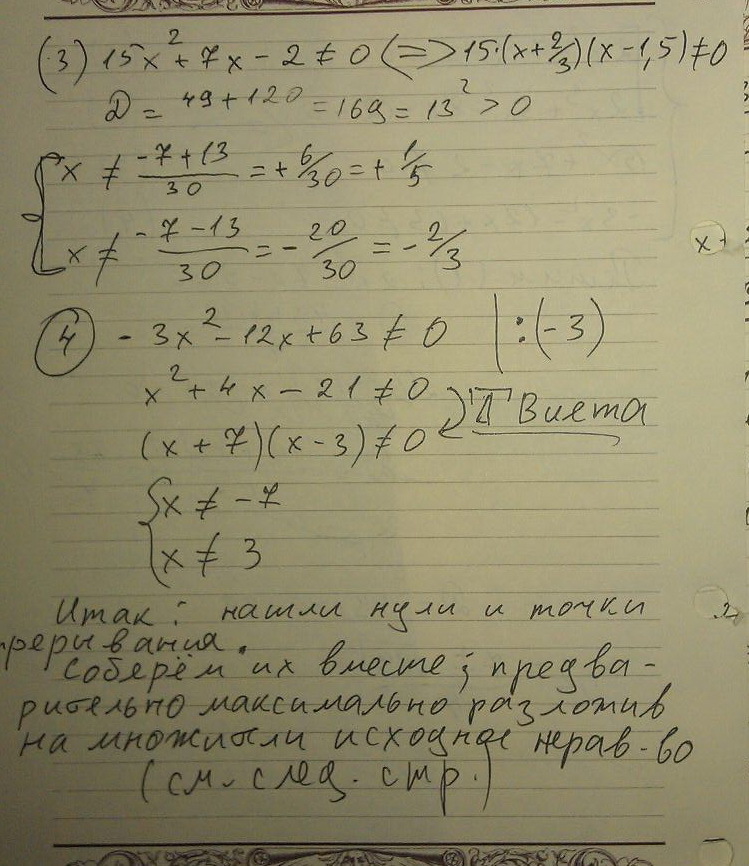 (3) 15x² + 7x - 2 ≠ 0 (=> 15·(x+2/3)(x-1,5) ≠ 0
D = 49+120 = 169 = 13² > 0
x ≠ (-7+13)/30 = + 6/30 = + 1/5
x ≠ (-7-13)/30 = - 20/30 = - 2/3
x +
(4) - 3x² - 12x + 63 ≠ 0 | :(-3)
x² + 4x - 21 ≠ 0
Т Виета
(x + 7)(x - 3) ≠ 0
{ x ≠ -7
x ≠ 3
Итак: нашли нули и точки
рерывания.
Соберём их вместе; предва-
рительно максимально разложив
на множители исходное нерав-во
(см. след. стр.)